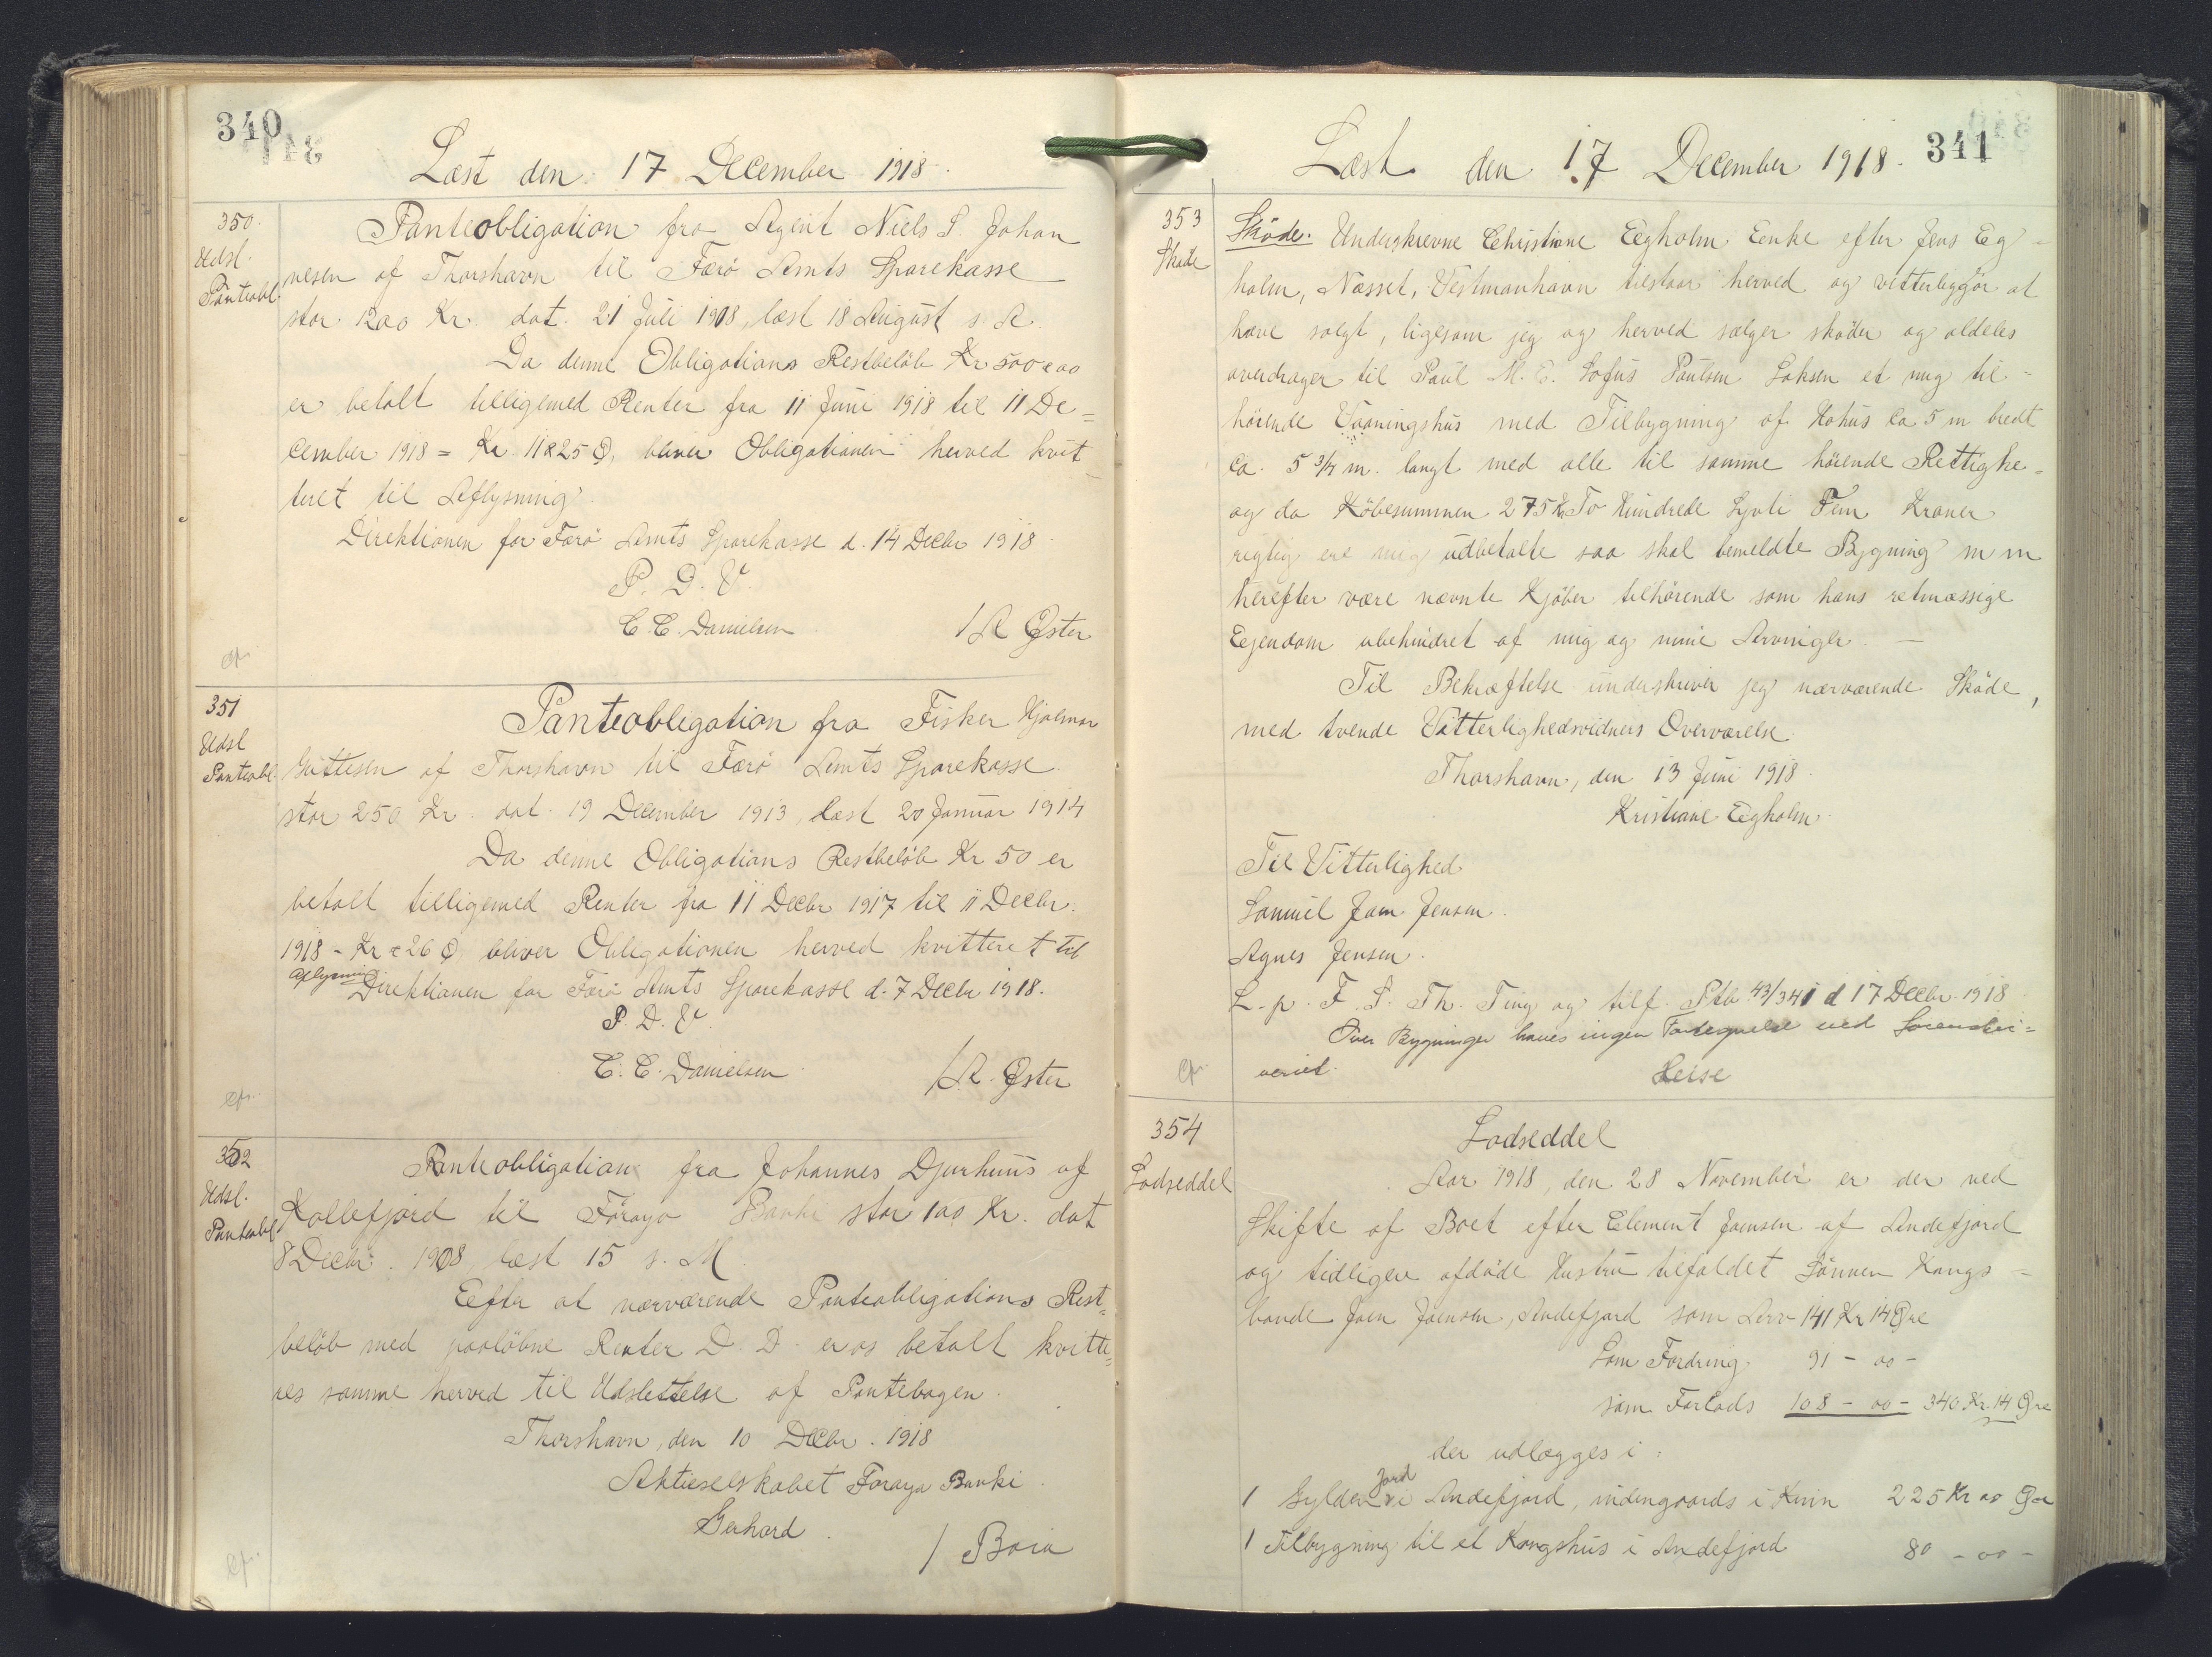 340
Læst den 17 December 1918.
350.
Udsl.
Panteobl.
Panteobligation fra Agent Niels P. Johan
nesen af Thorshavn til Færö Amts Sparekasse
stor 1200 Kr. dat. 21 Juli 1908, læst 18 August s. A.
Da denne Obligations Restbeløb Kr 500 00
er betalt tilligemed Renter fra 11 Juni 1918 til 11 De=
cember 1918 = Kr 11 25 Ø, bliver Obligationen herved kvit
teret til Aflysning.
Direktionen for Færö Amts Sparekasse d. 14 Decbr 1918.
P. D. V.
C. C. Danielsen / R Øster
cfr.
351
Udsl
Panteobl.
Panteobligation fra Fisker Hjalmar
Guttesen af Thorshavn til Færö Amts Sparekasse
stor 250 Kr. dat. 19 December 1913, læst 20 Januar 1914
Da denne Obligations Restbeløb Kr 50 er
betalt tilligemed Renter fra 11 Decbr 1917 til 11 Decbr.
1918 - Kr 2 26 Ø bliver Obligationen herved kvitteret til
Aflysning
Direktionen for Færö Amts Sparekasse d. 7 Decbr 1918.
P. D. V.
C. C. Danielsen / R. Øster
cfr.
352
Udsl.
Panteobl
Panteobligation fra Johannes Djurhuus af
Kollefjord til Föroya Banki stor 100 Kr. dat
8 Decbr. 1908, læst 15 s. M.
Efter at nærværende Panteobligations Rest=
beløb med paaløbne Renter D. D. er os betalt kvitte=
res samme herved til Udslettelse af Pantebogen.
Thorshavn, den 10 Decbr. 1918
Aktieselskabet Foroya Banki.
Gerhard. / Baia
cfr.
Læst den 17 December 1918. 341
353
Skøde
Sköde. Underskrevne Christiane Eegholm Enke efter Jens Eg=
holm, Næsset, Vestmanhavn tilstaar herved og vitterliggjør at
have solgt, ligesom jeg og herved sælger skøder og aldeles
overdrager til Paul M. E. Sofus Poulsen Saksen et mig til-
hörende Vaaningshus med Tilbygning af Kohus ca 5 m bredt
ca. 5 3/4 m. langt med alle til samme hörende Rettighe=
og da Købesummen 275 Kr To Hundrede Syvti Fem Kroner
rigtig ere mig udbetalte saa skal bemeldte Bygning m m
herefter være nævnte Kjøber tilhörende som hans retmæssige
Eejendom ubehindret af mig og mine Arvinger. —
Til Bekræftelse underskriver jeg nærværende Sköde,
med tvende Vitterlighedsvidners Overværelse.
Thorshavn, den 13 Juni 1918.
Kristiane Eegholm.
Til Vitterlighed
Samuel Jam Jensen.
Agnes Jensen.
L. p. F. S. Th. Ting og tilf. Ptb 43/341 d 17 Decbr. 1918
Over Bygninger haves ingen Fortegnelse ved Sorenskri=
veriet. Heise
cfr.
354
Lodseddel
Lodseddel
Aar 1918, den 28 November er der ved
Skifte af Boet efter Clement Joensen af Andefjord
og tidligere afdøde Hustru tilfaldet Sönnen Kongs-
bonde Joen Joensen, Andefjord som Arv 141 Kr 14 Øre
Som Fordring 91 - 00 -
som Forlods 108 - 00 - 340 Kr. 14 Øre
der udlægges i:
1 Gylden Jord i Andefjord, indengaards i Kvin 225 Kr 00 Øre
1 Tilbygning til et Kongshus i Andefjord 80 - 00 -